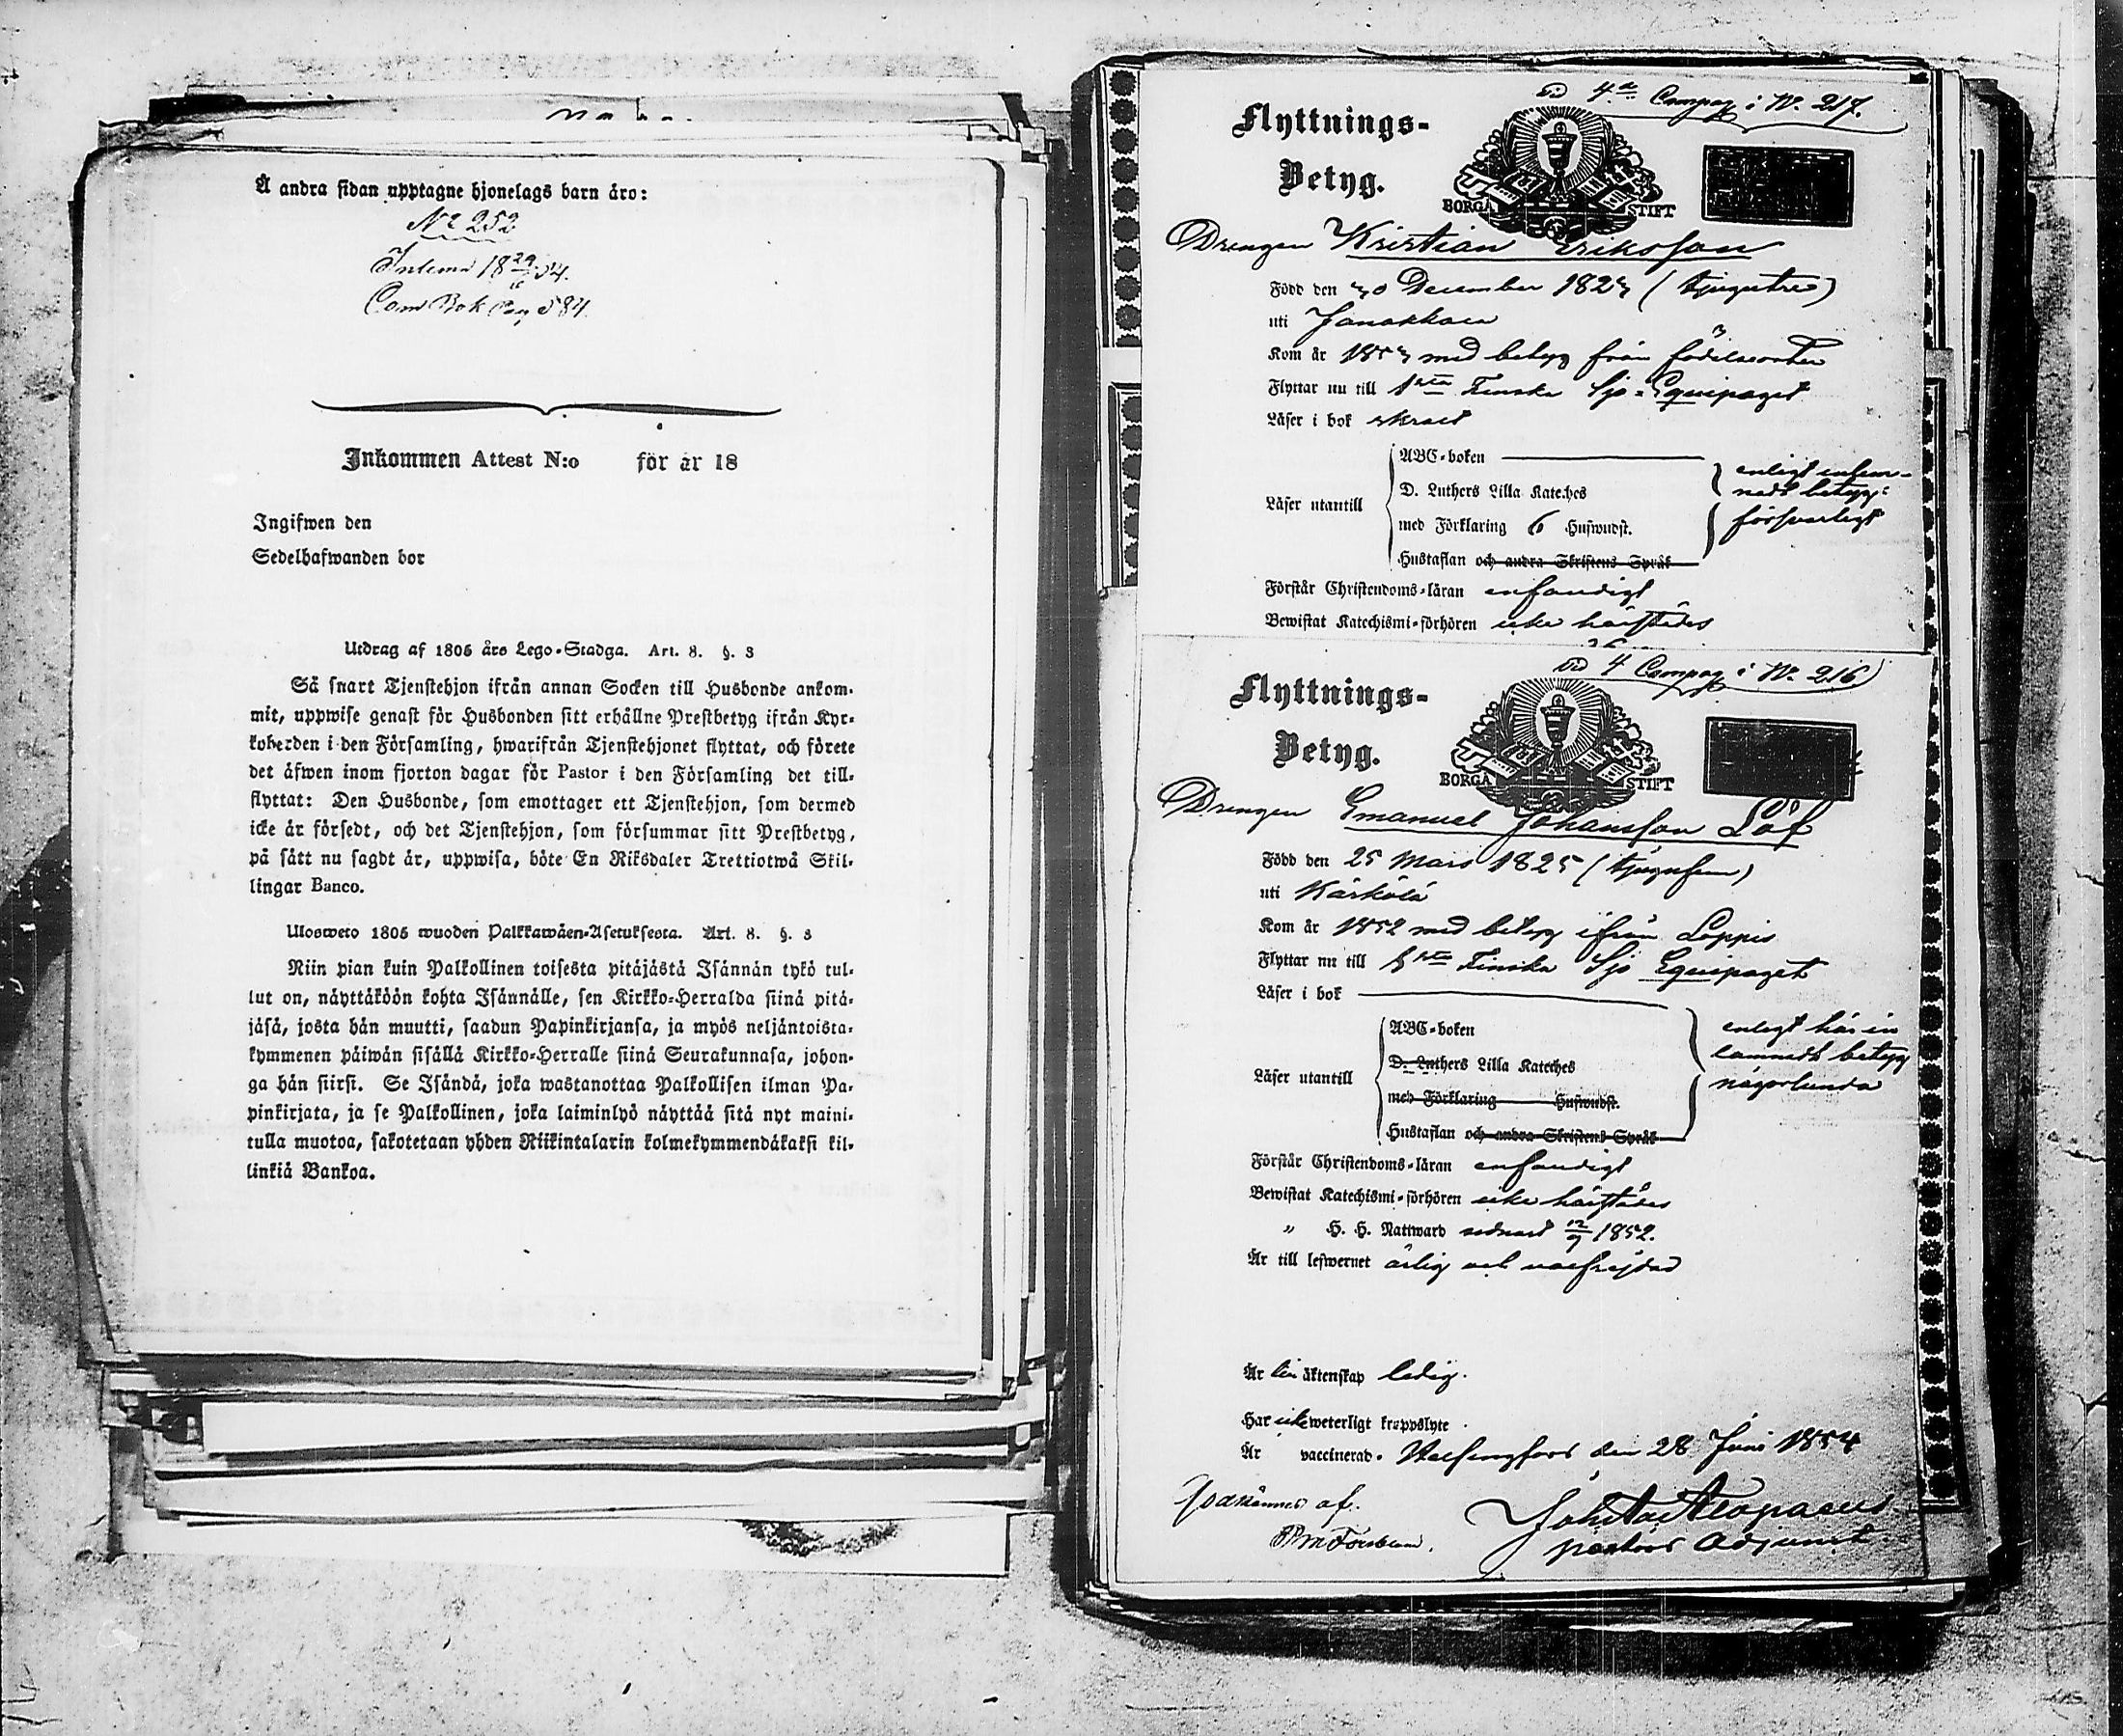 Å andra sidan upptagne hjonelags barn äro:
No 252
Inlemn 18 29/6 54.
Com Bok Pag 584.
Inkommen Attest N:o för år 18
Ingifwen den
Sedelhafwanden bor
Utdrag af 1805 års Lego-Stadga. Art. 8. §. 3
Så snart Tjenstehjon ifrån annan Socken till Husbonde ankom-
mit, uppwise genast för Husbonden sitt erhållne Prestbetyg ifrån Kyr-
koherden i den Församling, hwarifrån Tjenstehjonet flyttat, och förete
det äfwen inom fjorton dagar för Pastor i den Församling det till-
flyttat: Den Husbonde, som emottager ett Tjenstehjon, som dermed
icke är försedt, och det Tjenstehjon, som försummar sitt Prestbetyg,
på sätt nu sagdt är, uppwisa, böte En Riksdaler Trettiotwå Skil-
lingar Banco.
Ulosweto 1805 wuoden Palkkawäen-Asetuksesta. Art. 8. §. 3
Niin pian kuin Palkollinen toisesta pitäjästä Isännän tykö tul-
lut on, näyttäköön kohta Isännälle, sen Kirkko-Herralda siinä pitä-
jäsä, josta hän muutti, saadun Papinkirjansa, ja myös neljäntoista-
kymmenen päiwän sisällä Kirkko-Herralle siinä Seurakunnasa, johon-
ga hän siirsi. Se Isändä, joka wastanottaa Palkollisen ilman Pa-
pinkirjata, ja se Palkollinen, joka laiminlyö näyttää sitä nyt maini-
tulla muotoa, sakotetaan yhden Riikintalarin kolmekymmendäkaksi kil-
linkiä Bankoa.
4de Compag i N. 217.
Flyttnings-
Betyg.
BORGÅ STIFT
Drengen Kristian Eriksson
Född den 30 December 1823 (tjugutre)
uti Janakkala
Kom år 1853 med betyg från födelseorten
Flyttar nu till 1sta Finska Sjö-Equipaget
Läser i bok
ABC-boken
enligt inlem-
D. Luthers Lilla Kateches
nadt betyg:
Läser utantill
med Förklaring 6 Huswudst.
försvarligt
Hustaflan och andra Skriftens Språk
Förstår Christendoms-läran enfaldigt
Bewistat Katechismi-förhören icke härstädes
4 Compag i N. 216
Flyttnings-
Betyg.
BORGÅ STIFT
Drengen Emanuel Johansson Löf
Född den 25 Mars 1825 (tjugufem)
uti Kärkölä
Kom år 1852 med betyg ifrån Loppis
Flyttar nu till 1sta Finska Sjö Equipaget
Läser i bok
ABC-boken
enligt här in
D. Luthers Lilla Kateches
lemnadt betyg
Läser utantill
någorlunda
med Förklaring Huswudst.
Hustaflan och andra Skriftens Språk
Förstår Christendoms-läran enfaldigt
Bewistat Katechismi-förhören icke härstädes
" H. H. Nattward sednast 12/9 1852.
Är till lefwernet ärlig och välfrejdad
Är till äktenskap ledig.
Har icke weterligt kroppslyte
Är vaccinerad. Helsingfors den 28 Juni 1854
Godkännes af.
pastors Adjunct